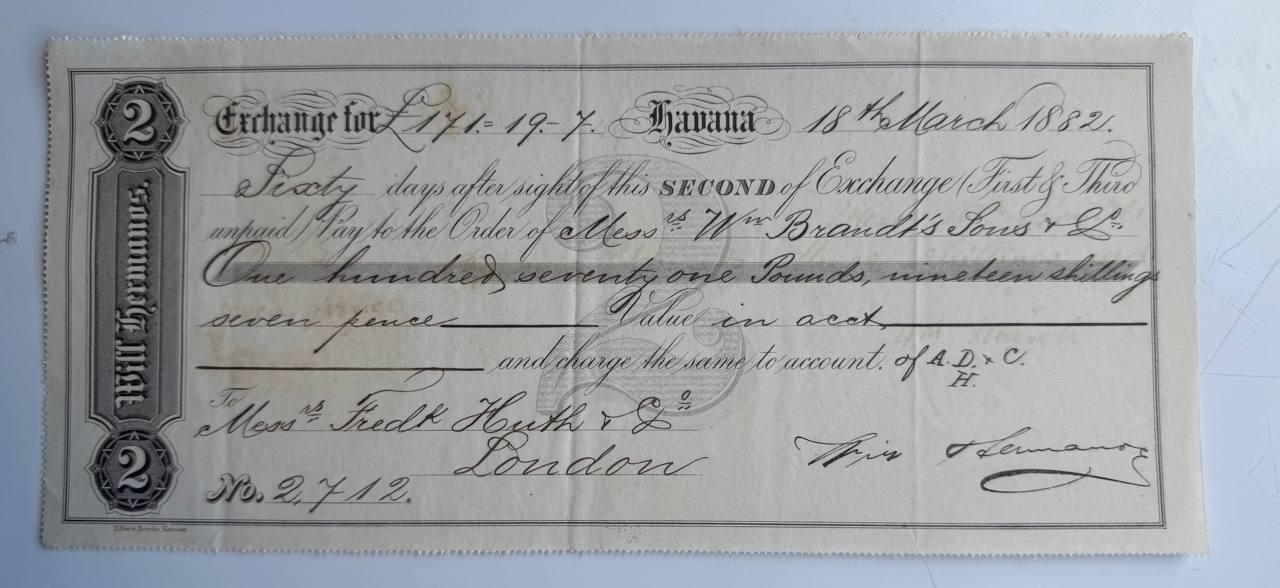 2
Will Hermanos.
2
Exchange for £171.=19.-7. Havana 18th March 1882.
Sixty days after sight of this SECOND of Exchange (First & Third
unpaid) Pay to the Order of Messrs Wm Brandt's Sons & Co.
One hundred seventy one Pounds, nineteen shillings
seven pence Value in acct
and charge the same to account. of A.D. & C.
H.
To
Messrs Fredk Huth & Co
London
Will Hermanos
No. 2,712.